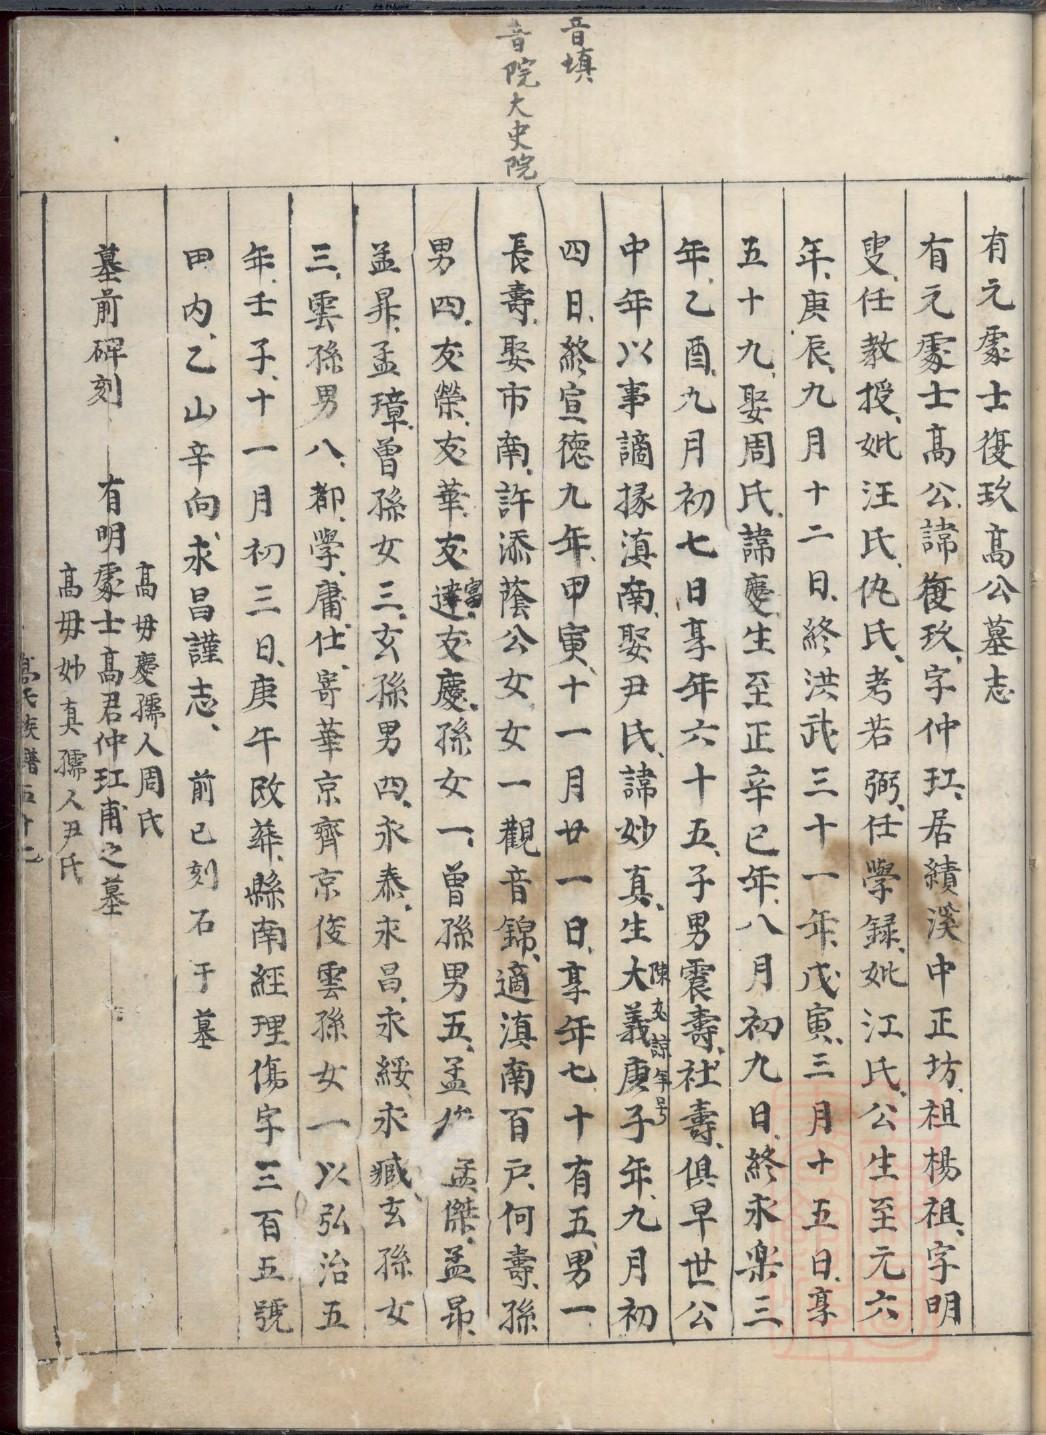 音填
音院大史院
有元處士復玖高公墓志
有元處士高公諱復玖、字仲玒、居績溪中正坊、祖楊祖、字明
叟、任教授、妣汪氏、仇氏、考若弼、任學録、妣江氏、公生至元六
年、庚辰、九月十二日、終洪武三十一年、戊寅、三月十五日、享
五十九、娶周氏、諱慶、生至正辛巳年、八月初九日、終永楽三
年、乙酉、九月初七日、享年六十五、子男震壽、社壽、俱早世公
中年以事謫掾滇南、娶尹氏、諱妙真、生大義庚子年、九月初
陳友諒年号
四日、終宣德九年、甲寅、十一月廿一日、享年七十有五、男一
長壽、娶市南、許添蔭公女、女一觀音錦、適滇南百戸、何壽、孫
男四、友榮、友華、友達、友慶、孫女一、曾孫男五、孟 孟傑、孟昂、
富
孟昇、孟璋、曾孫女三、玄孫男四、永泰、永昌、永綏、永臧、玄孫女
三、雲孫男八、都、學、庸、仕、寄華京齊京俊雲孫女一以弘治五
年、壬子、十一月初三日、庚午改葬、縣南經理傷字三百五號
田内、乙山辛向、永昌謹志、 前已刻石于墓
墓前碑刻 有明處士高君仲玒甫之墓
高母慶孺人周氏
高母妙真孺人尹氏
高氏族譜五十七